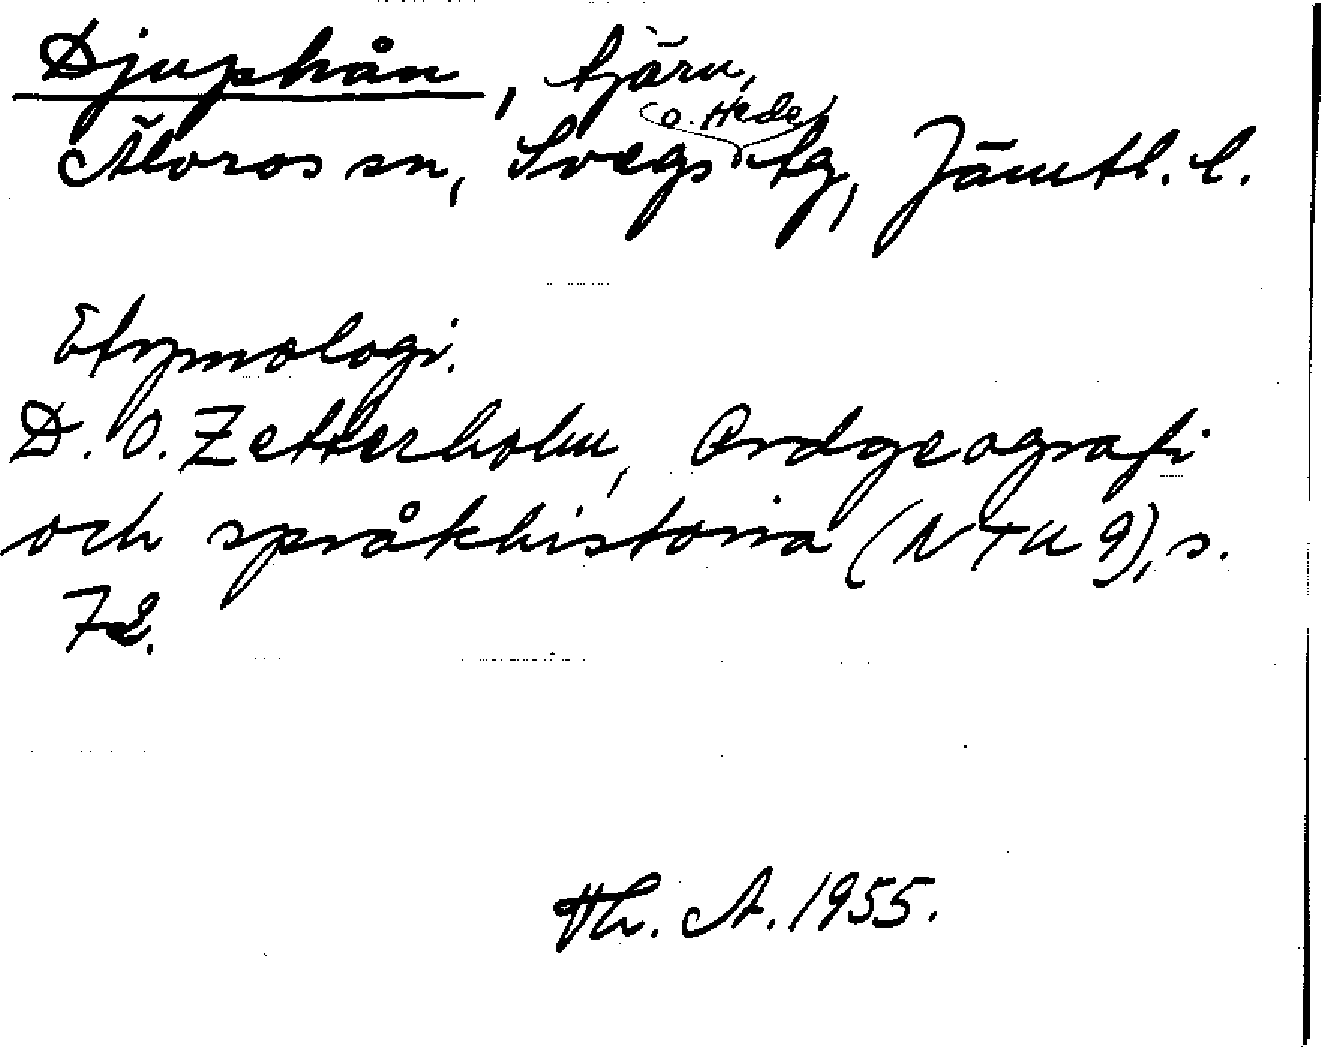 Djuphån, tjärn,
Älvros sn, Svegs o. Hede tg, Jämtl. l.
Etymologi.
D. O. Zetterholm, Ordgeografi
och språkhistoria (NTU 9), s.
72.
Th. A. 1955.